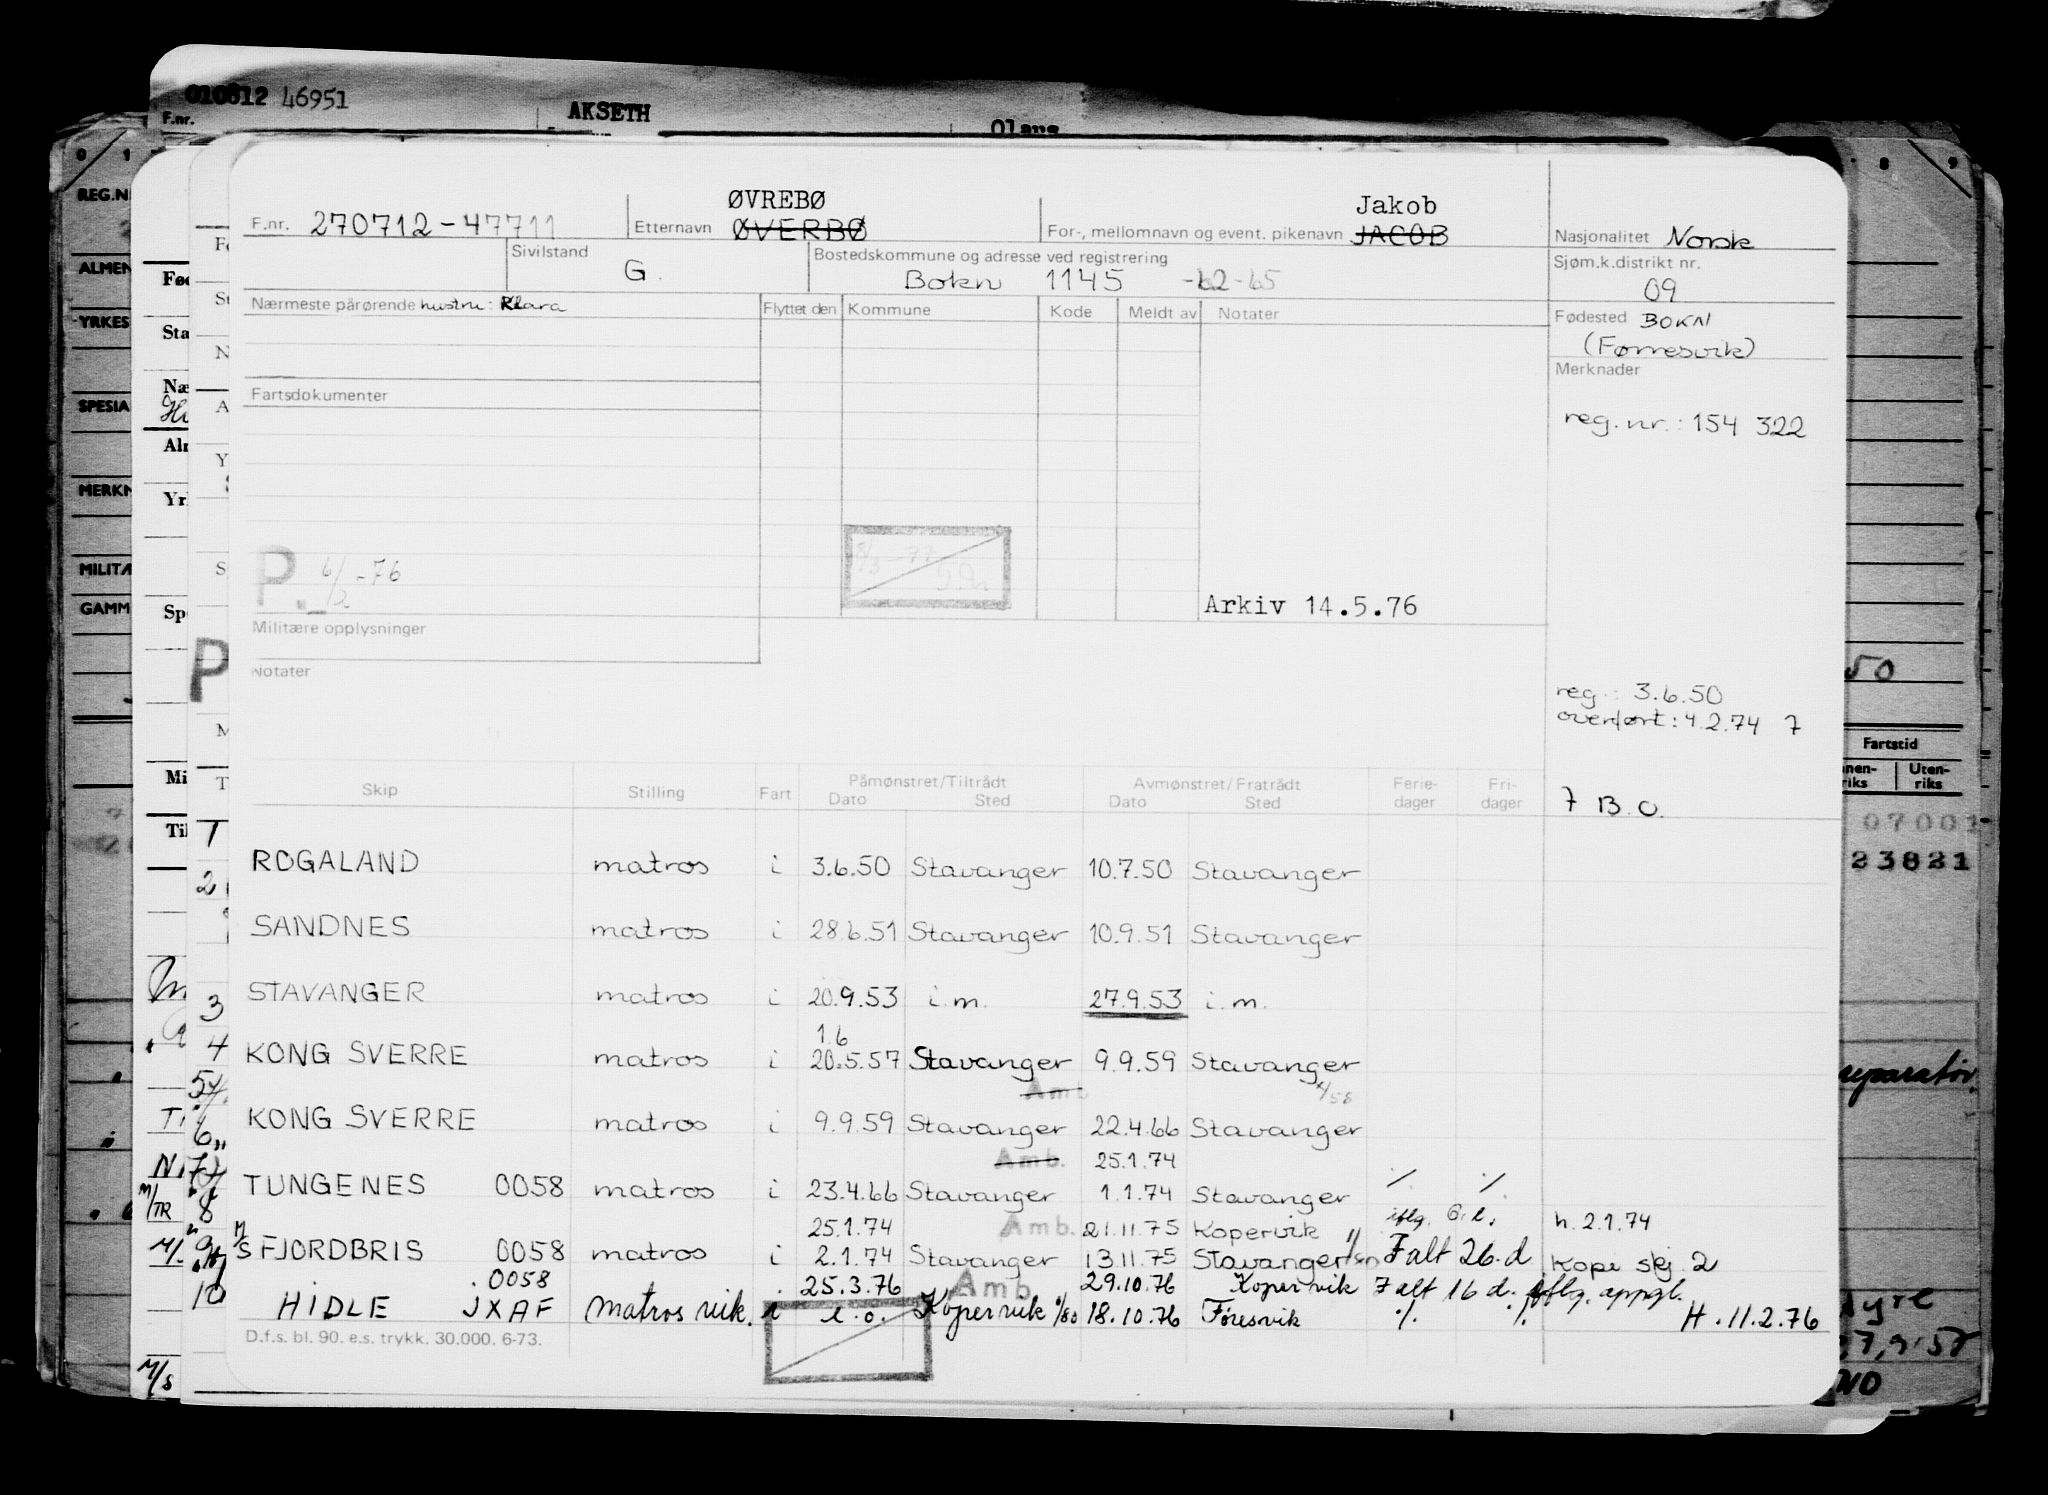 010612 46951
F.nr.
AKSETH
Olans
REG.N
ALMEN
YRKES
SPESIA
MERKN
MILITÆ
GAMM
Fød
Sta
Næ
Alm
Yr
Sp
Mi
Til
8 9
50
Fartstid
Uten-
riks
07001
23821
reparatør.
F.nr. 270712-47711 Etternavn ØVREBØ ØVERBØ For-, mellomnavn og event. pikenavn Jakob JACOB Nasjonalitet Norsk
Sivilstand G. Bostedskommune og adresse ved registrering Bokn 1145 -62-65 Sjøm.k.distrikt nr. 09
Nærmeste pårørende hustru: Klara Flyttet den Kommune Kode Meldt av Notater Fødested BOKN
(Førresvik)
Merknader
Fartsdokumenter
reg.nr.: 154 322
P. 6/2 -76
Arkiv 14.5.76
Militære opplysninger
Notater
reg.: 3.6.50
overført: 4.2.74 7
Skip Stilling Fart Påmønstret/Tiltrådt Dato Sted Avmønstret/Fratrådt Dato Sted Ferie-dager Fri-dager
7 B.O.
ROGALAND matros i 3.6.50 Stavanger 10.7.50 Stavanger
SANDNES matros i 28.6.51 Stavanger 10.9.51 Stavanger
STAVANGER matros i 20.9.53 i.m. 27.9.53 i.m.
1.6
KONG SVERRE matros i 20.5.57 Stavanger 9.9.59 Stavanger
Amb
KONG SVERRE matros i 9.9.59 Stavanger 22.4.66 Stavanger
Amb. 25.1.74
TUNGENES 0058 matros i 23.4.66 Stavanger 1.1.74 Stavanger
25.1.74 Amb. 21.11.75 Kopervik h. 2.1.74
M/S FJORDBRIS 0058 matros i 2.1.74 Stavanger 13.11.75 Stavanger I alt 26.d Kopi skj. 2
0058 25.3.76 Amb 29.10.76 Kopervik I alt 16 d.
HIDLE JXAF Matros vik. i l.o. Kopervik 18.10.76 Føresvik H. 11.2.76
D.f.s. bl. 90. e.s. trykk. 30.000. 6-73.